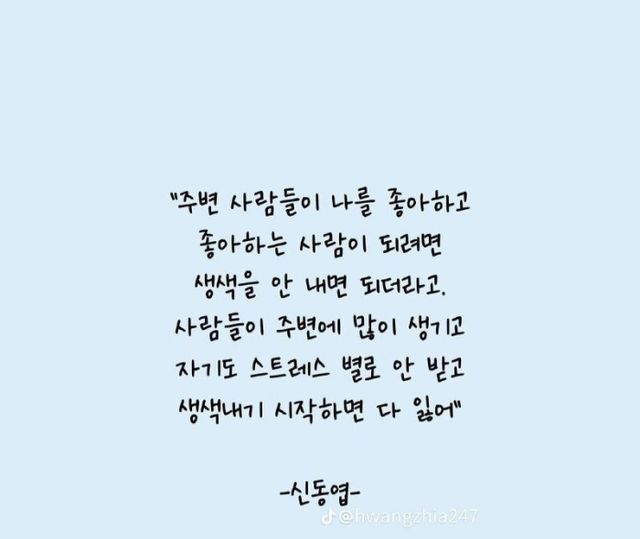 "주변 사람들이 나를 좋아하고
좋아하는 사람이 되려면
생색을 안 내면 되더라고.
사람들이 주변에 많이 생기고
자기도 스트레스 별로 안 받고
생색내기 시작하면 다 잃어"
-신동엽-
@hwangzhia247